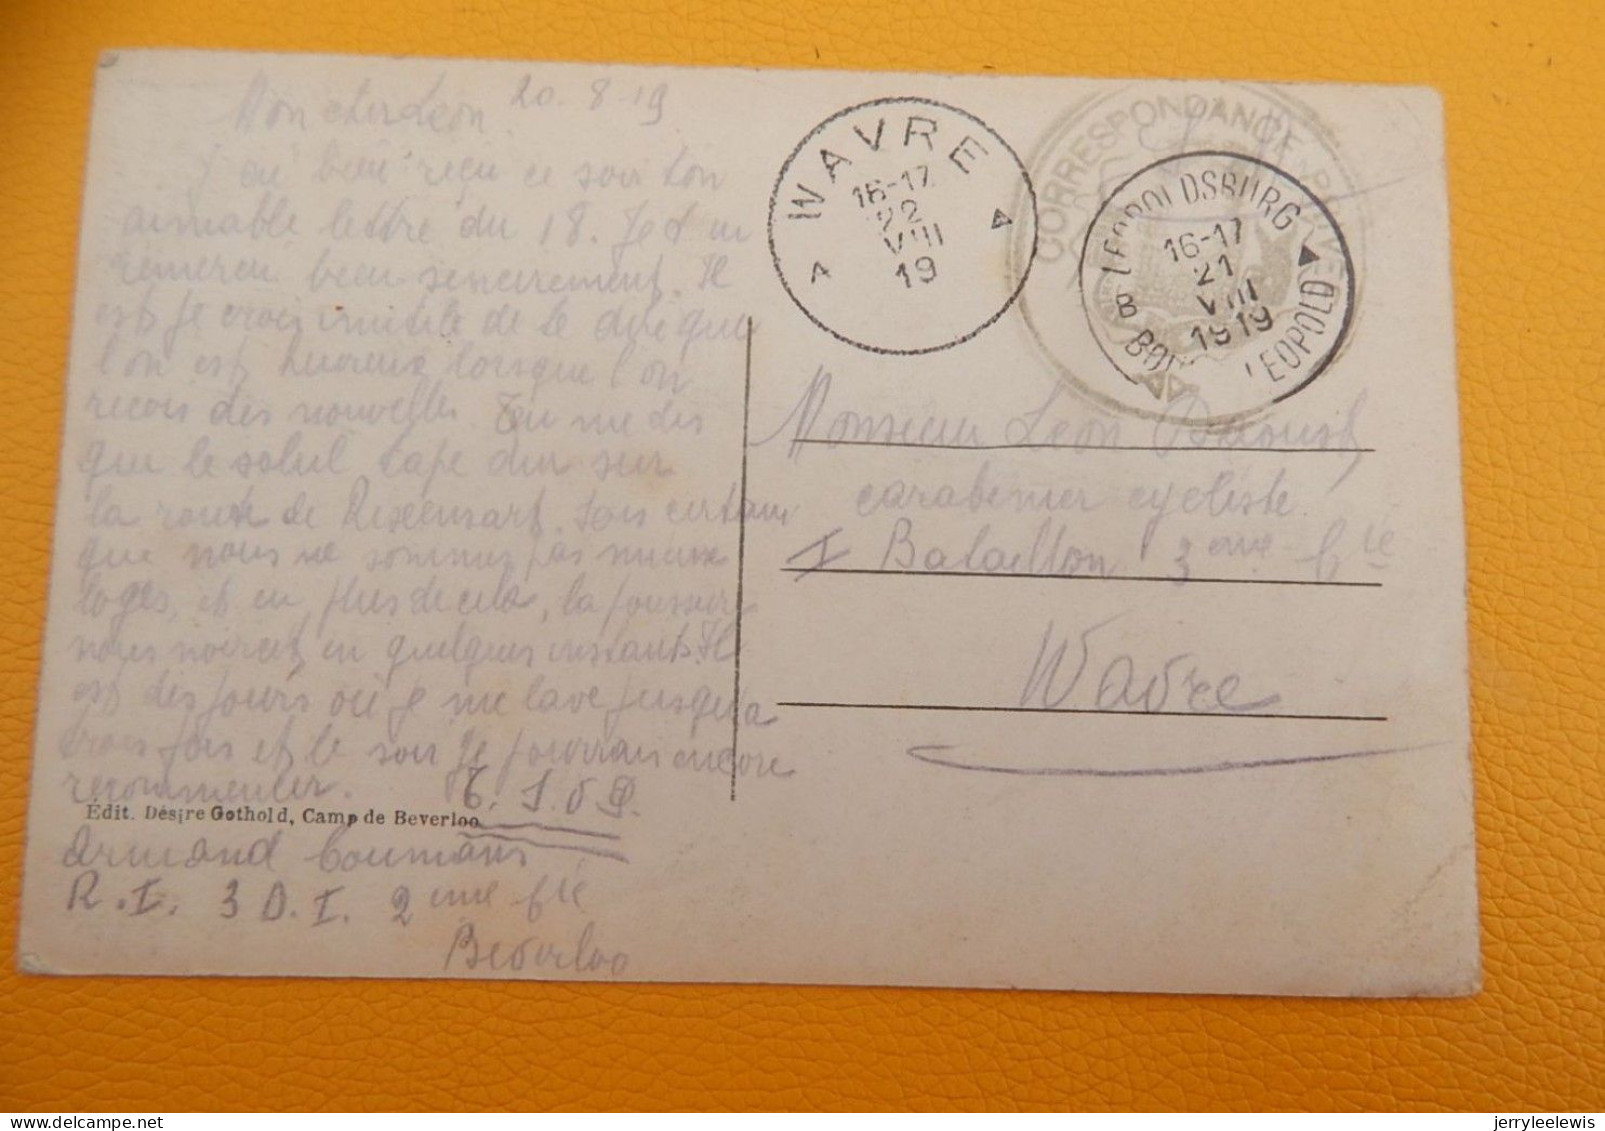 20-8-19
Mon cher Leon.
J'ai bien reçu ce soir ton
aimable lettre du 18. Je t'en
remercie bien sincirement. Il
est je crois inutile de te dire que
l'on est heureux lorsque l'on
reçois des nouvelles. Tu me dis
que le soleil tape dur sur
la route de Rixensart. Sois certain
que nous ne sommes pas mieux
logés, et en plus de cela, la poussier
nous noircit en quelques instants. Il
est des jours où je me lave jusqu'a
trois fois et le soir je pourrais encore
recommencer.
Édit. Désire Gothold, Camp de Beverloo
Armand Coumans
R.I. 3 D.I. 2eme Cie
Beverloo
WAVRE
16-17
22
VIII
19
CORRESPONDANCE PRIVÉE
LEOPOLDSBURG
16-17
21
VIII
1919
B
LEOPOLD
Monsieur Leon
carabinier cycliste
I Bataillon 3eme Cie
Wavre